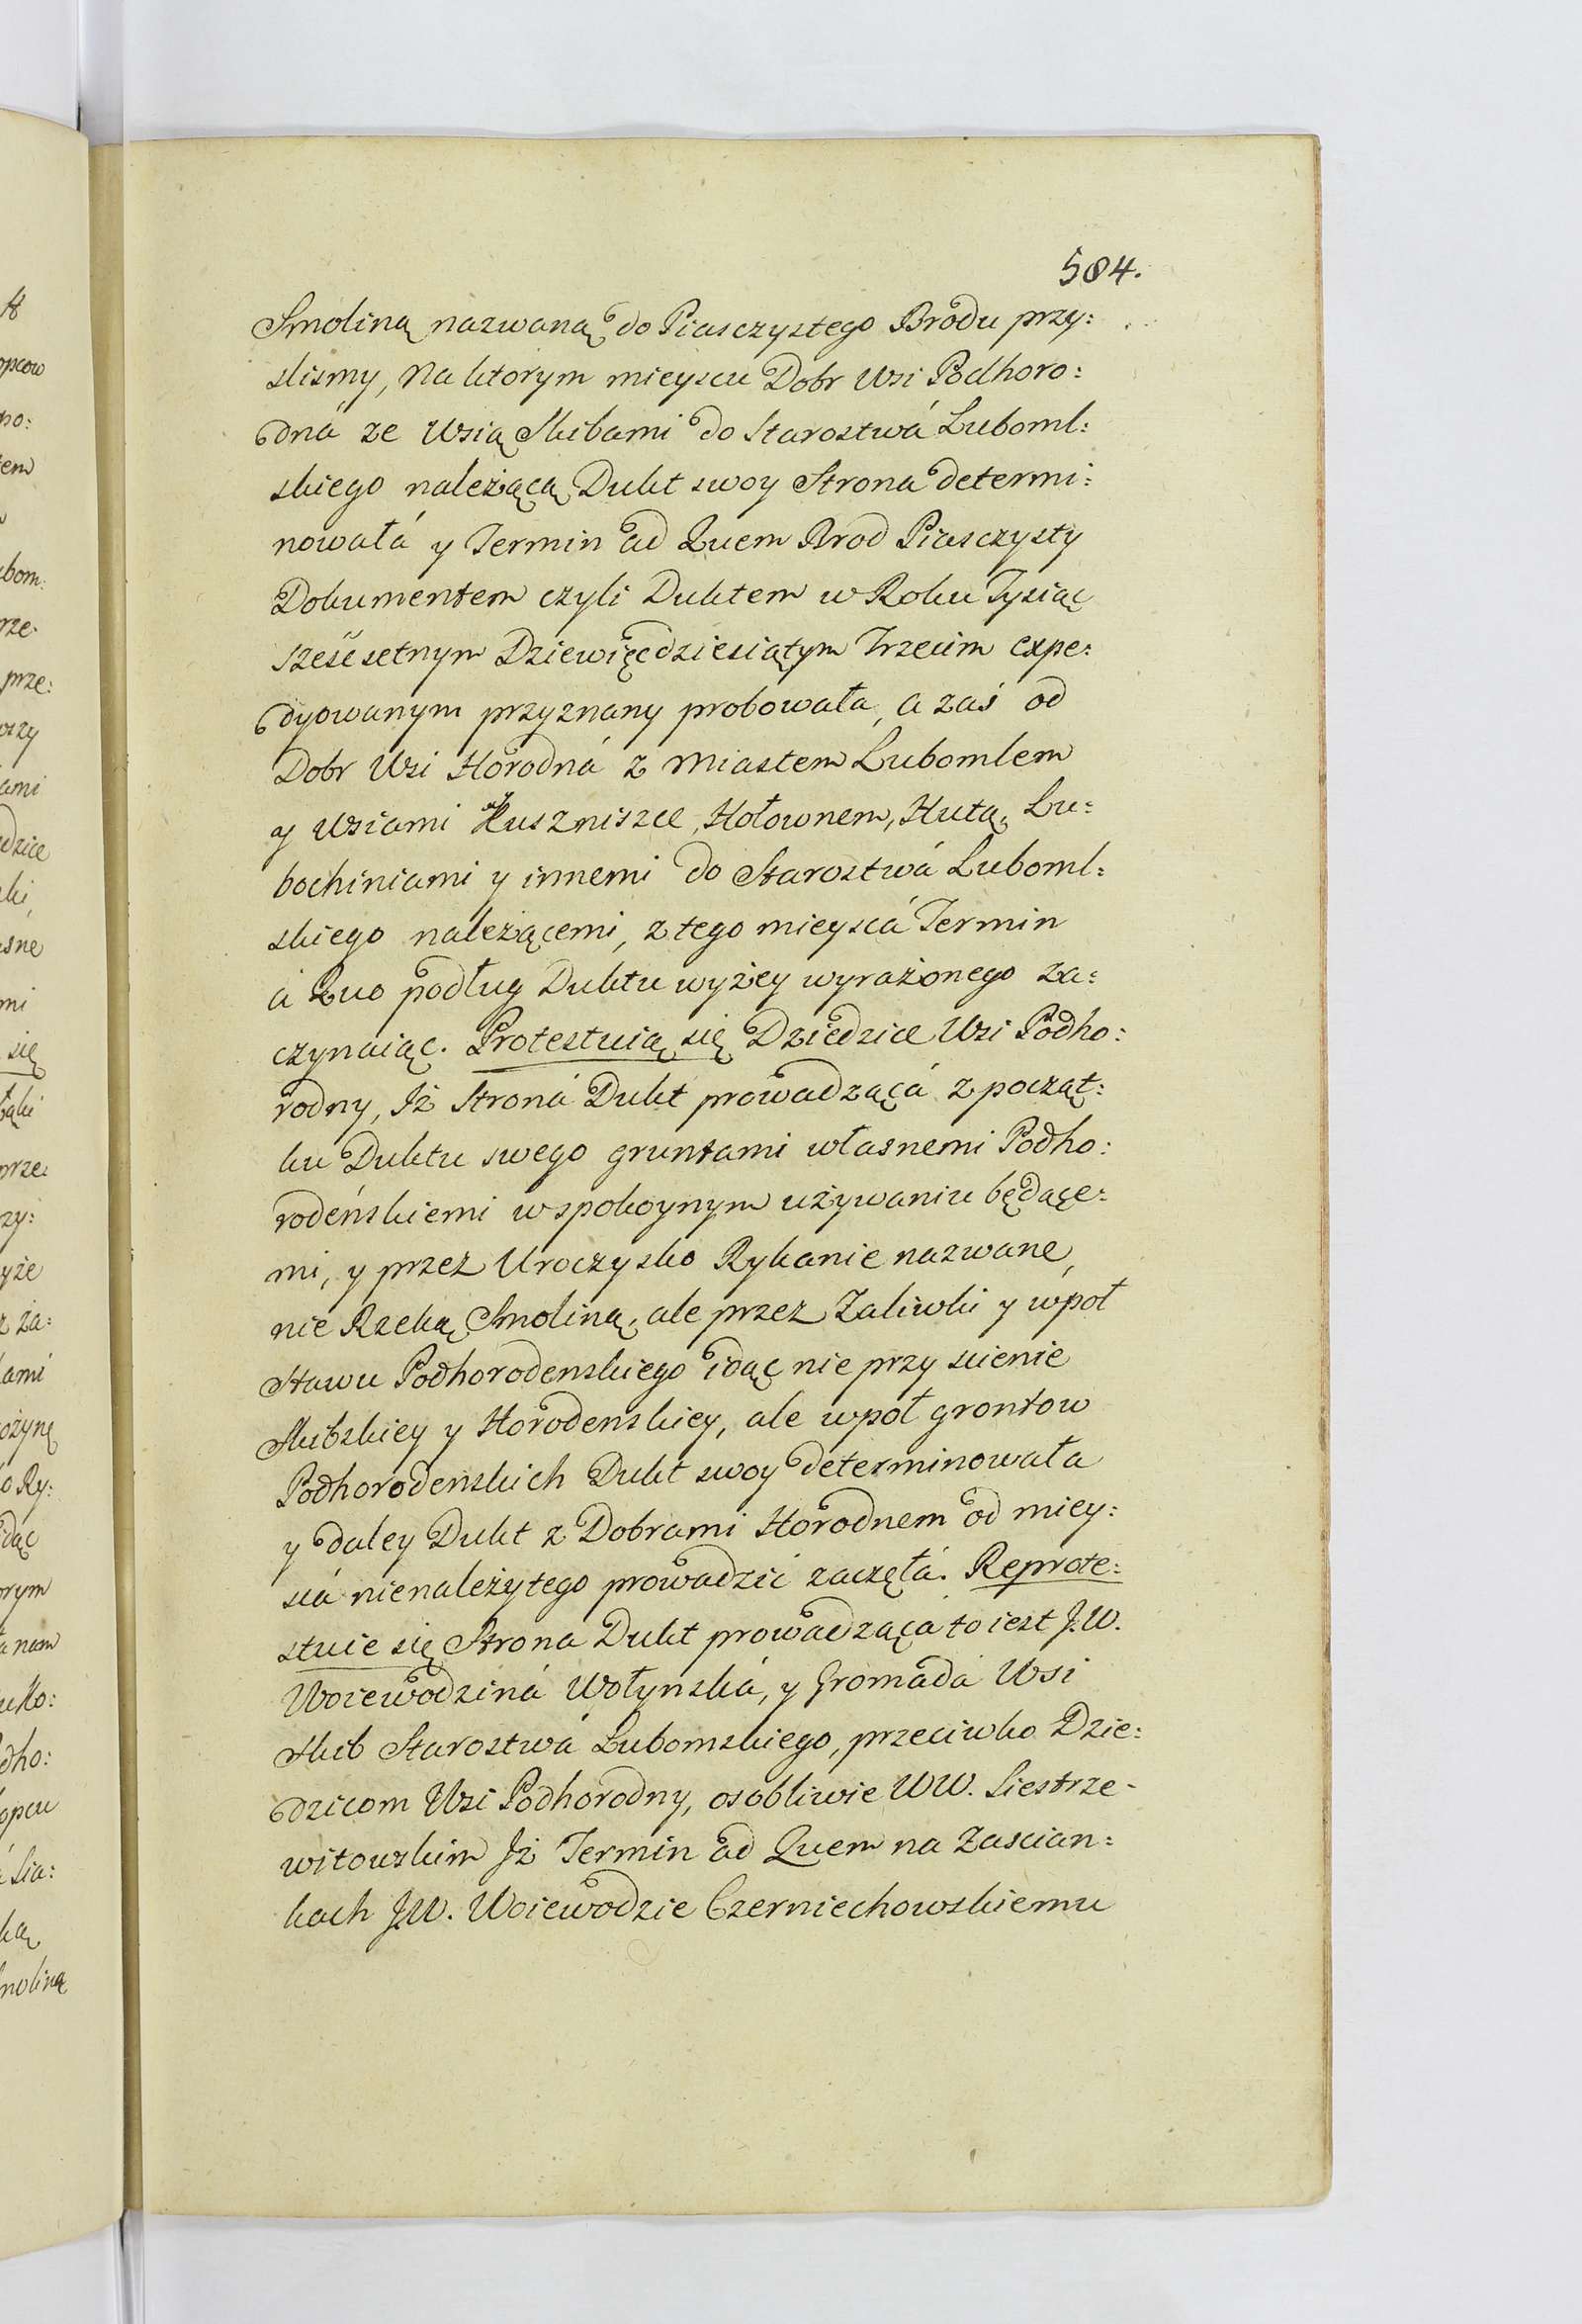 584.
Smoliną nazwaną do Piasczystego Brodu przy:
slismy, Na ktorym mieyscu Dobr Wsi Podhoro:
dná ze Wsią Skibami do Starostwá Luboml:
skiego należącą Dukt swoy Strona determi:
nowałá y Termin ad Quem Brod Piasczysty
Dokumentem czyli Duktem w Roku Tysiąc
sześćsetnym Dziewięcdziesiątym Trzecim expe:
dyowanym przyznany probowała, a zaś od
Dobr Wsi Horodná z Miastem Lubomlem
y Wsiami Huszniszce, Hołownem, Hutą, Lu:
bochiniami y innemi do Starostwá Luboml:
skiego należącemi, z tego mieyscá Termin
á Quo podług Duktu wyżey wyrażonego za:
czynaiąc. Protestuią się Dziedzice Wsi Podho:
rodny, Iż Stroná Dukt prowadzącá z począt:
ku Duktu swego gruntami własnemi Podho:
rodeńskiemi w spokoynym używaniu będące:
mi, y przez Uroczysko Rykanie nazwane,
nie Rzeką Smoliną, ale przez Zaliwki y wpoł
Stawu Podhorodenskiego idąc nie przy scienie
Skibskiey y Horodenskiey, ale wpoł grontow
Podhorodenskich Dukt swoy determinowała
y daley Dukt z Dobrami Horodnem od miey:
scá nienależytego prowadzić zaczęłá. Reprote:
stuie się Strona Dukt prowadzącá to iest J.W.
Woiewodziná Wołynská, y Gromadá Wsi
Skib Starostwá Lubomskiego, przeciwko Dzie:
dzicom Wsi Podhorodny, osobliwie WW. Siestrze-
witowskim Iż Termin ad Quem na Zascian:
kach J.W. Woiewodzie Czerniechowskiemu